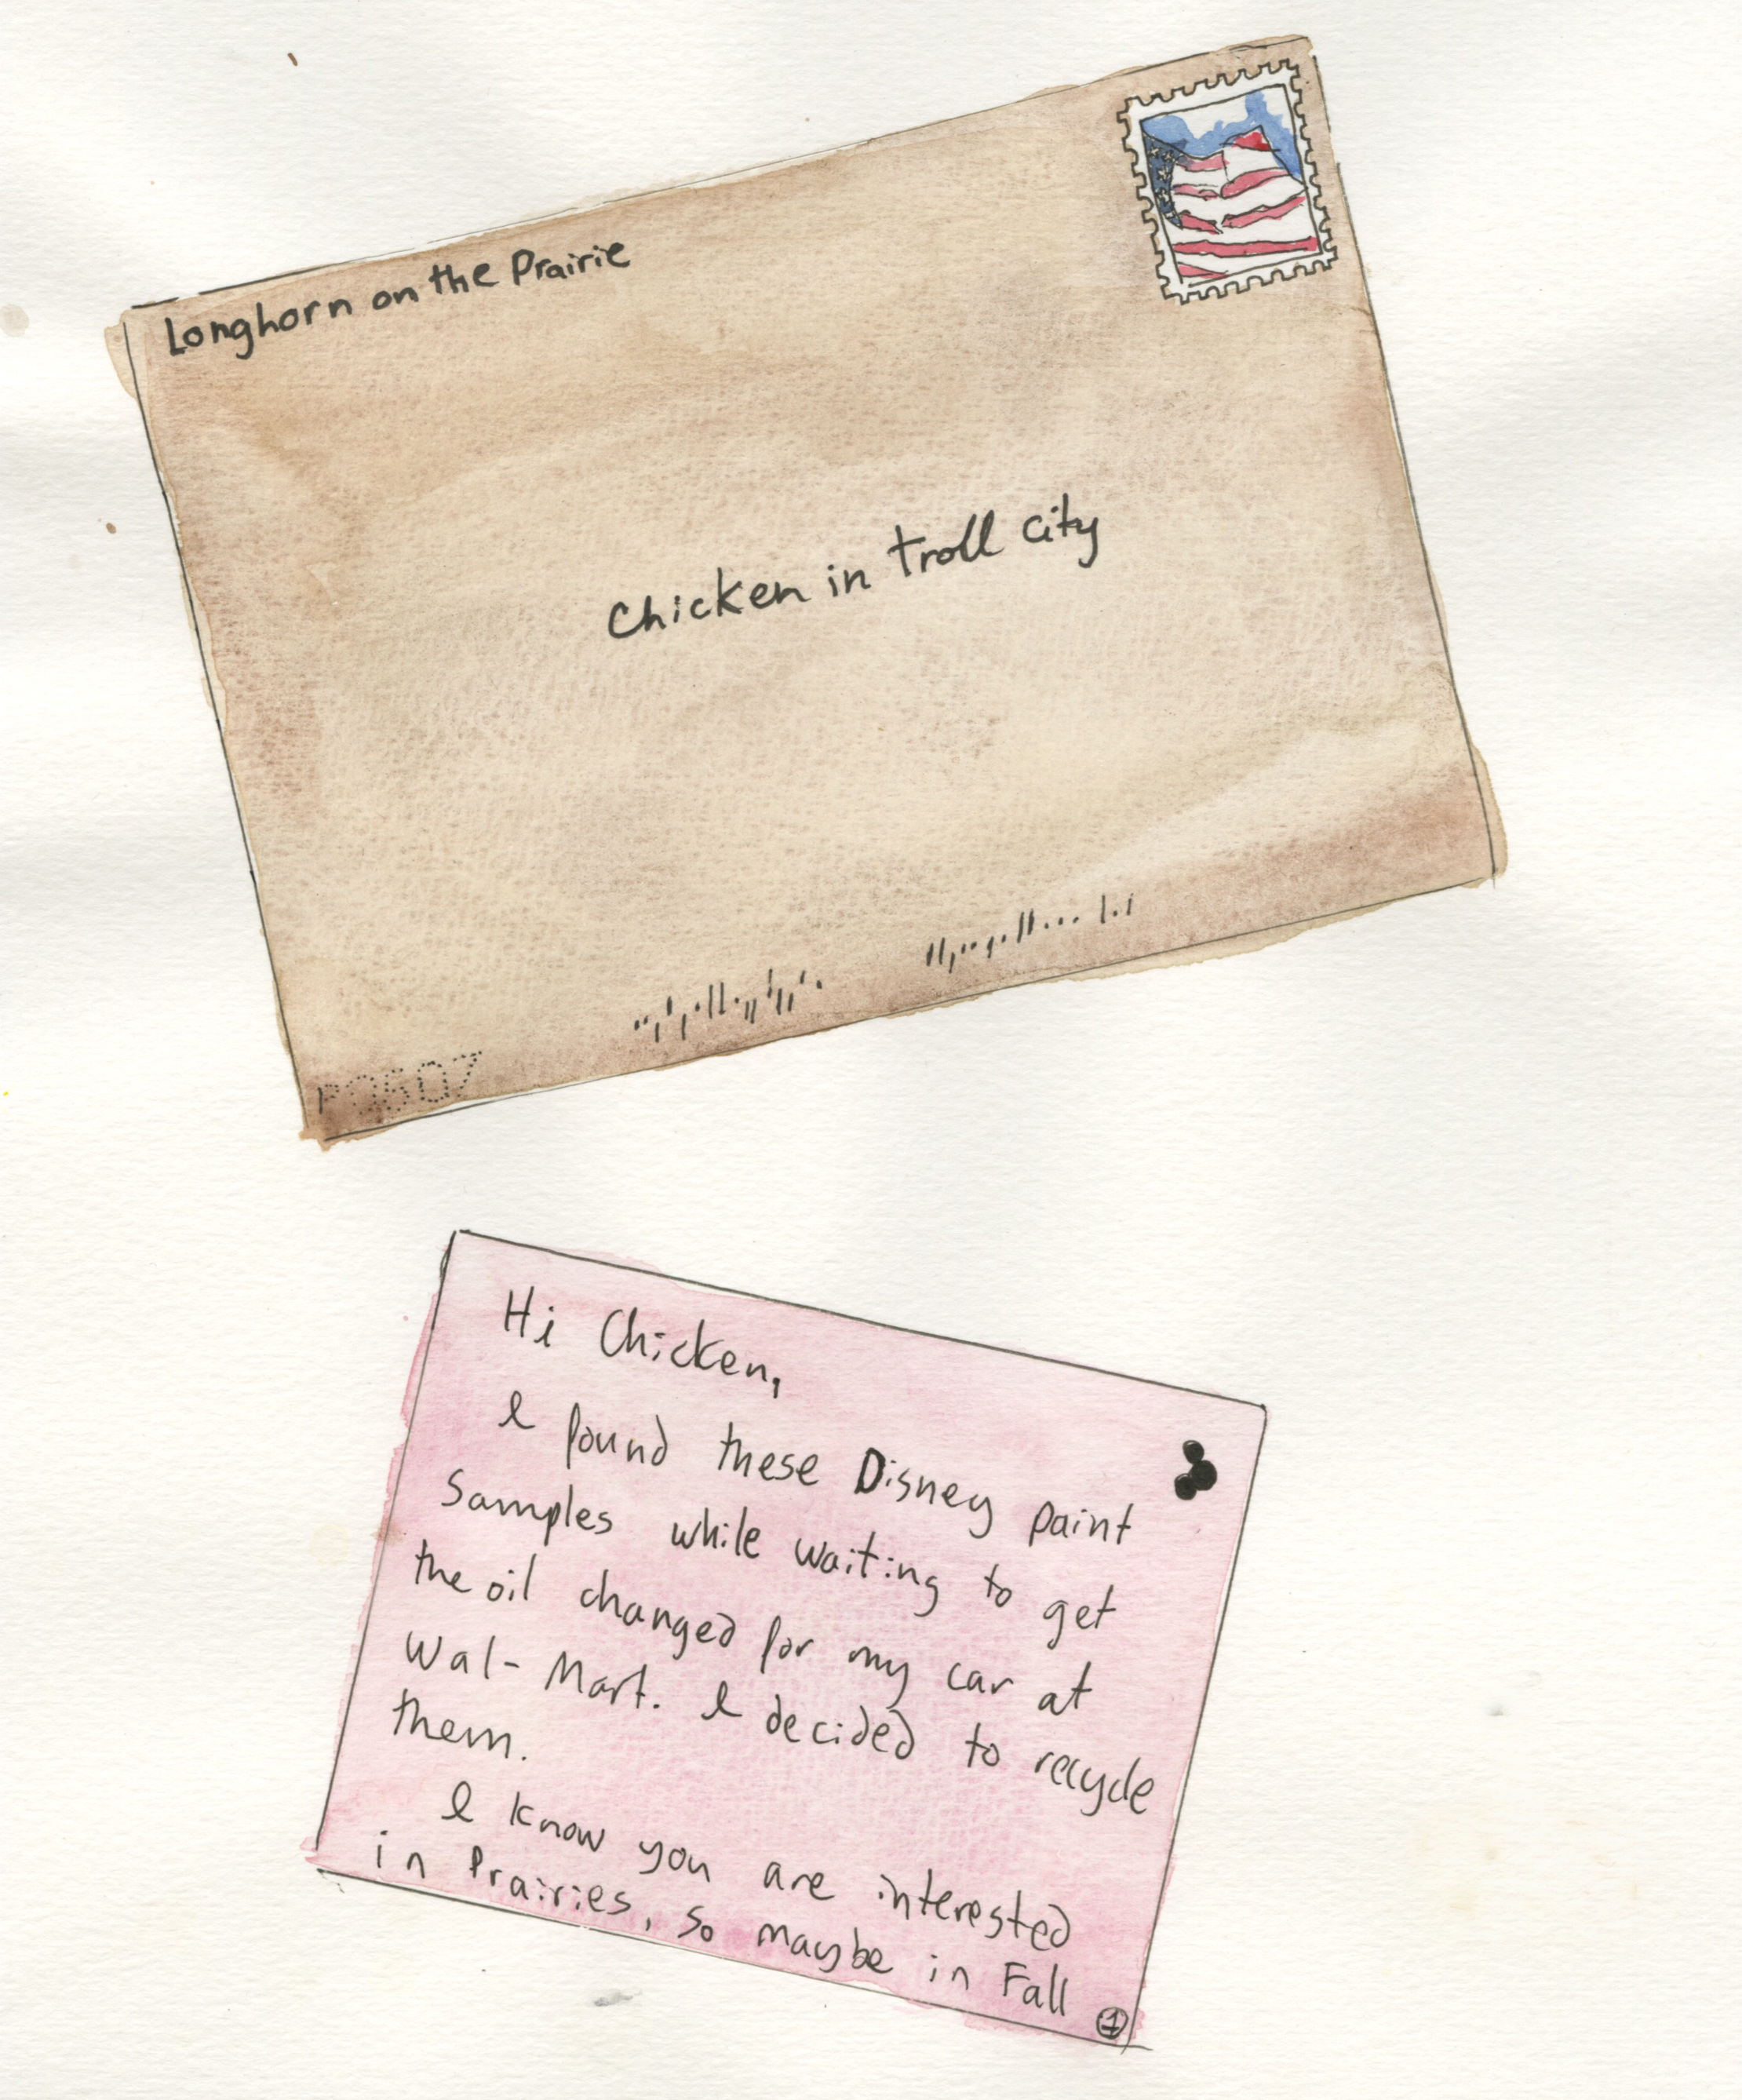 Longhorn on the Prairie
Chicken in Troll City
P0507
Hi Chicken,
I found these Disney paint
samples while waiting to get
the oil changed for my car at
Wal-Mart. I decided to recycle
them.
I know you are interested
in Prairies, so maybe in Fall
1